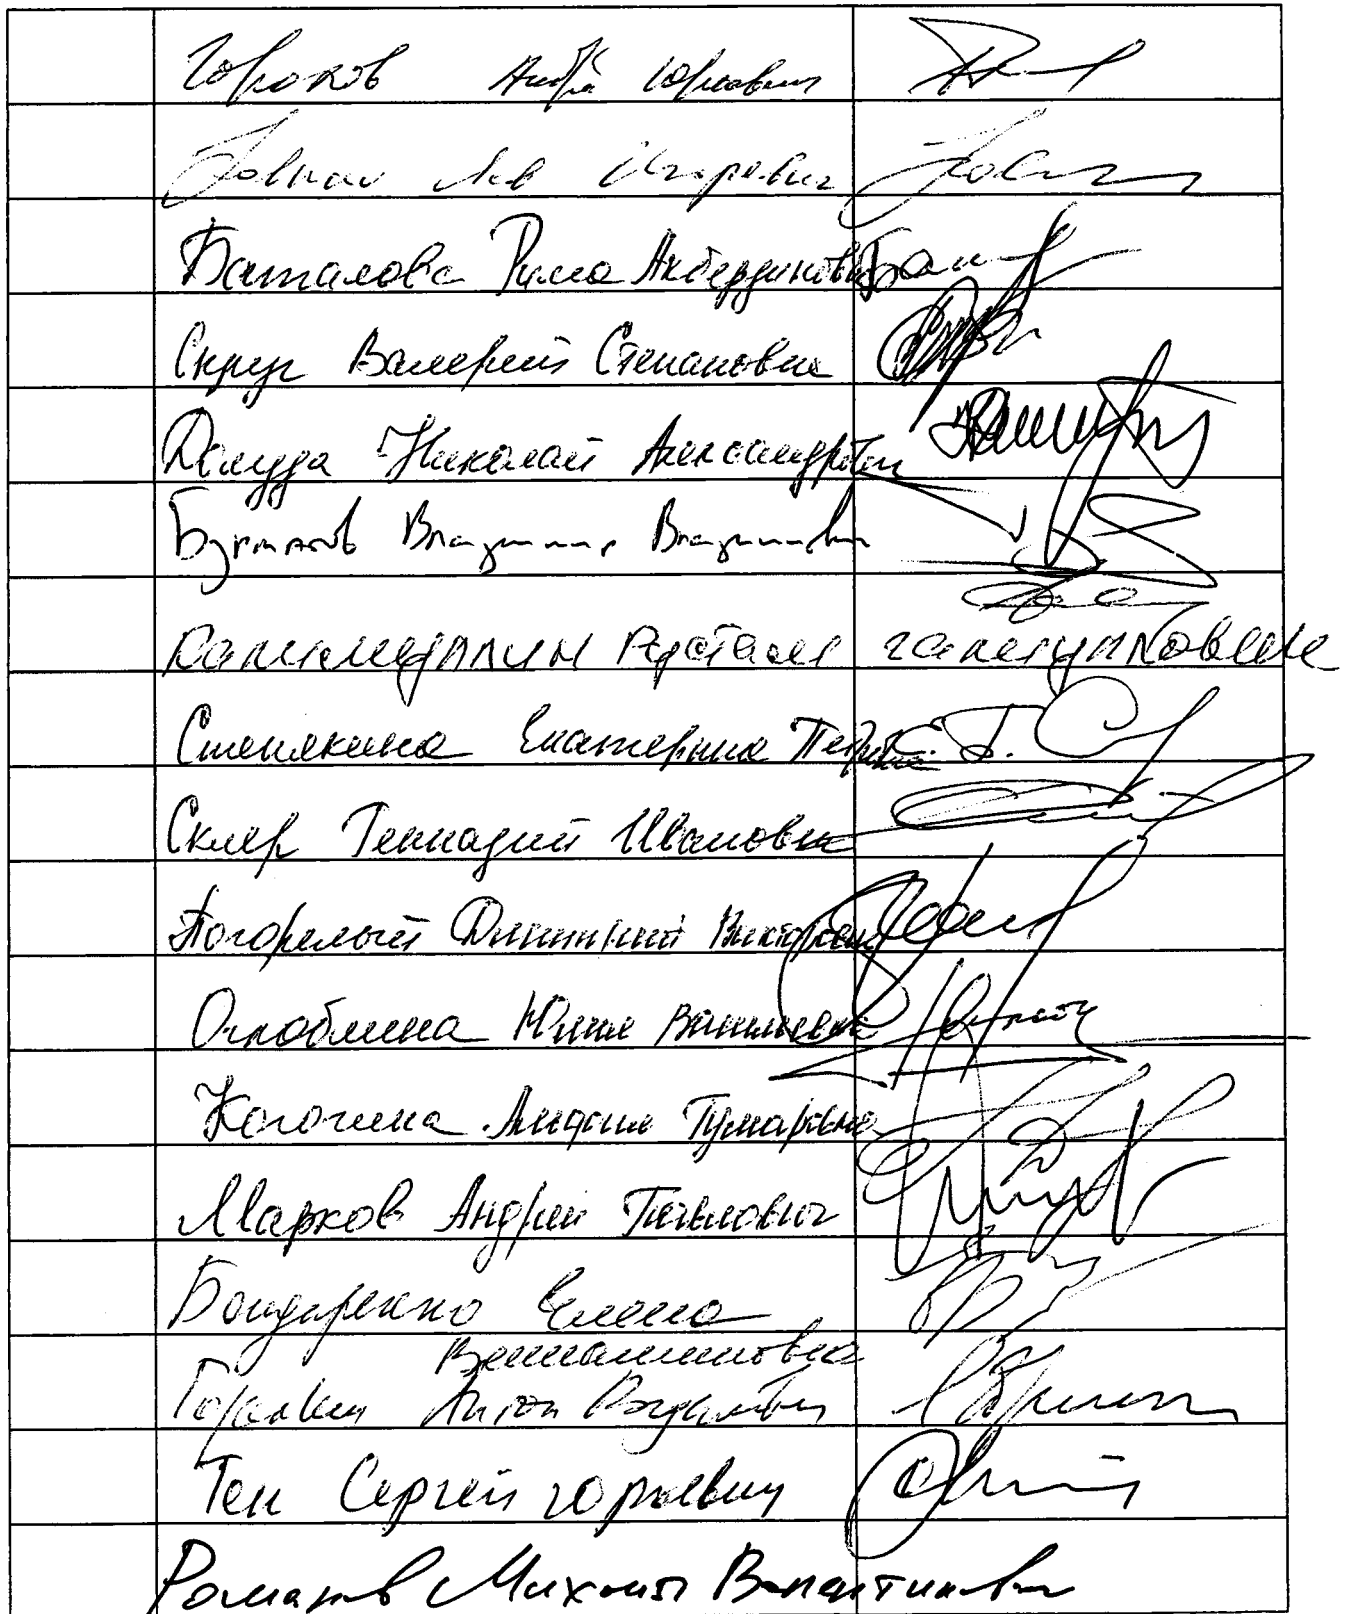 Горохов Андрей Юрьевич
Ковпак Лев Игоревич
Баталова Римма Акбердиновна
Скруг Валерий Степанович
Долуда Николай Александрович
Бурматов Владимир Владимирович
Калимуллин Рустам Галиуллович
Стенякина Екатерина Петровна
Скляр Геннадий Иванович
Погорелый Дмитрий Викторович
Оглоблина Юлия Васильевна
Когогина Альфия Гумаровна
Марков Андрей Павлович
Бондаренко Елена
Вениаминовна
Горелкин Антон
Тен Сергей Юрьевич
Романов Михаил Валентинович